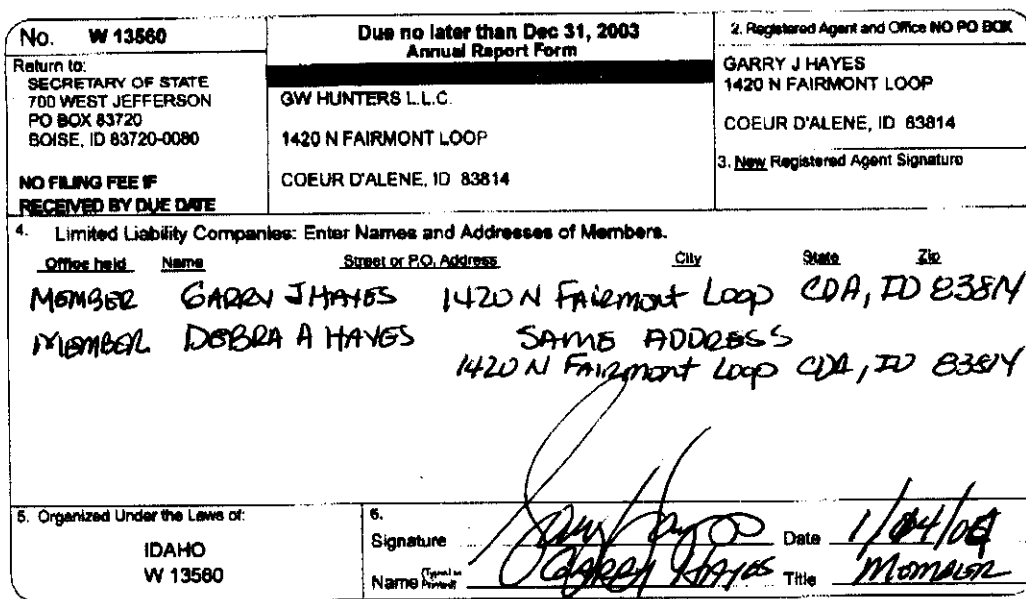 No. W 13560
Return to:
SECRETARY OF STATE
700 WEST JEFFERSON
PO BOX 83720
BOISE, ID 83720-0080
NO FILING FEE IF
RECEIVED BY DUE DATE
Due no later than Dec 31, 2003
Annual Report Form
GW HUNTERS L.L.C.
1420 N FAIRMONT LOOP
COEUR D'ALENE, ID 83814
2. Registered Agent and Office NO PO BOX
GARRY J HAYES
1420 N FAIRMONT LOOP
COEUR D'ALENE, ID 83814
3. New Registered Agent Signature
4. Limited Liability Companies: Enter Names and Addresses of Members.
Office held Name Street or P.O. Address City State Zip
MEMBER GARRY J HAYES 1420 N FAIRMONT LOOP CDA, ID 83814
MEMBER DEBRA A HAYES SAME ADDRESS
1420 N FAIRMONT LOOP CDA, ID 83814
5. Organized Under the Laws of:
IDAHO
W 13560
6.
Signature Date
Name (Typed or Printed) GARRY HAYES Title MEMBER